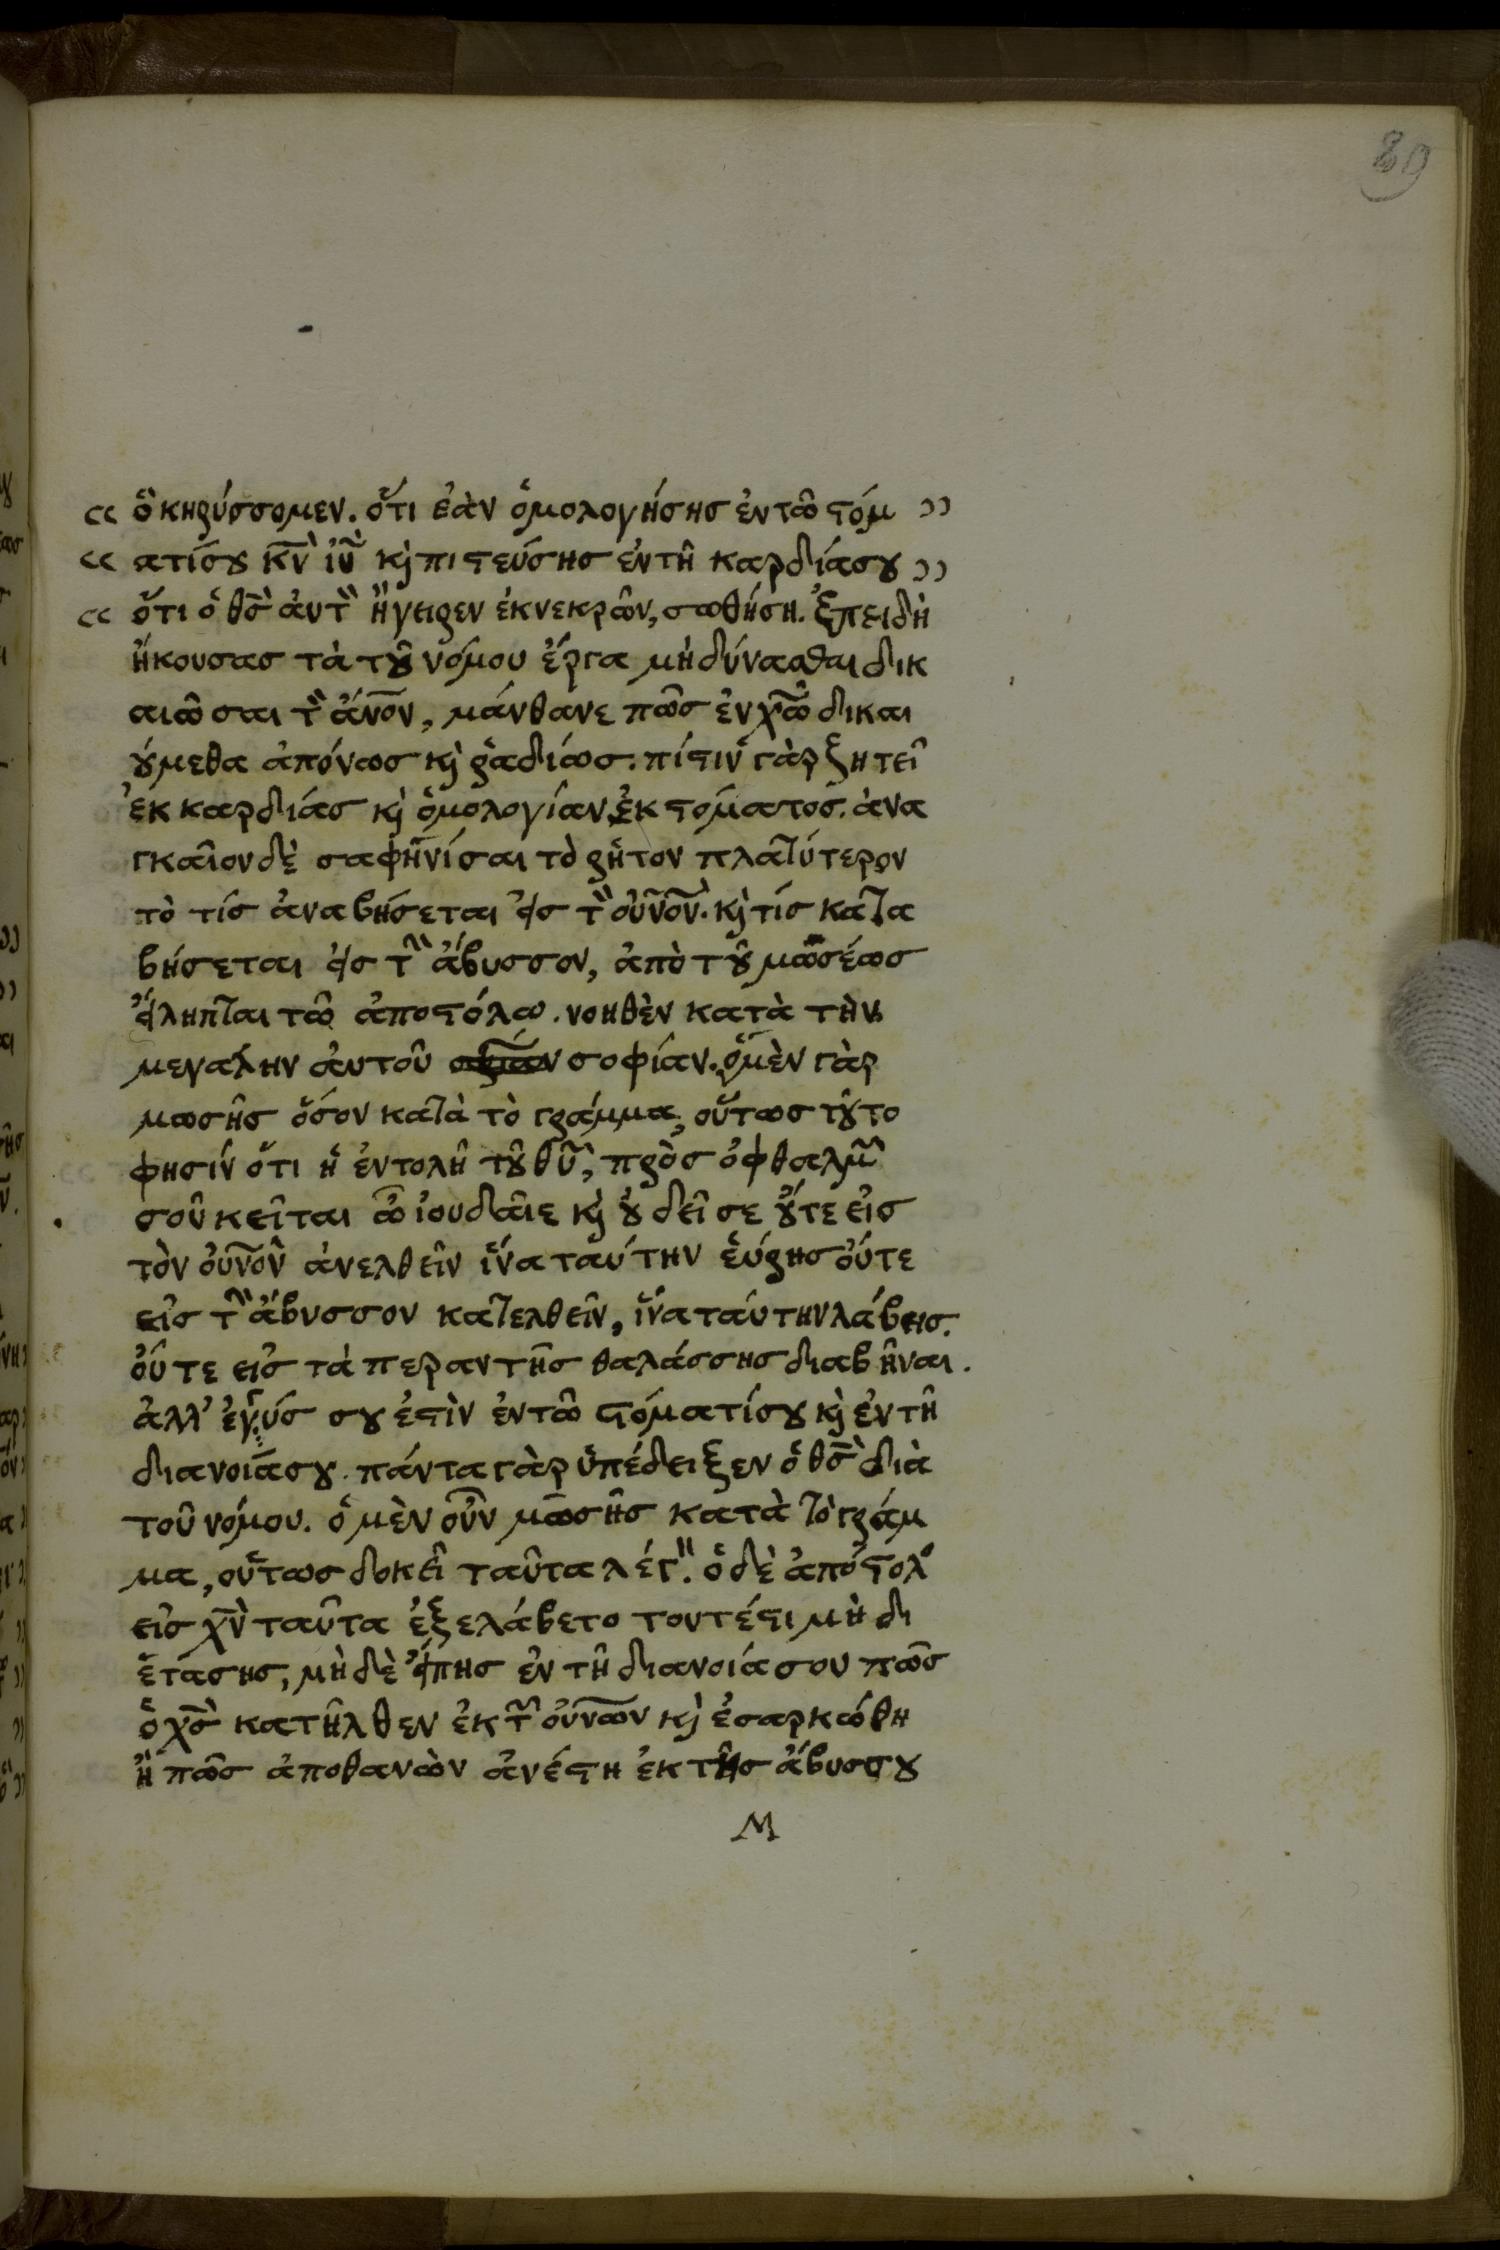 89
ὃ κηρύσσομεν. ὅτι ἐὰν ὁμολογήσης ἐν τῶ στόμ
ατί σου κ̅ν̅ ι̅ν̅ κὶ πιστεύσης ἐν τῆ καρδία σου
ὅτι ὁ θ̅σ̅ ἀυτὸν ἤγειρεν ἐκ νεκρῶν, σωθήση. Ἐπειδὴ
ἤκουσας τὰ τοῦ νόμου ἔργα μὴ δύνασθαι δικ
αιῶσαι τὸν ἄν̅ο̅ν̅, μάνθανε πῶς ἐν χ̅ῶ̅ δικαι
ούμεθα ἀπόνως κὶ ῥαδίως. πίστιν γὰρ ζητεῖ
ἐκ καρδίας κὶ ὁμολογίαν ἐκ στόματος. ἀνα
γκαῖον δὲ σαφηνίσαι τὸ ῥητον πλατύτερον
τὸ τίς ἀναβήσεται εἰς τὸν οὐν̅ο̅ν̅. κὶ τίς κατα
βήσεται εἰς τὴν ἄβυσσον, ἀπὸ τοῦ μωσέως
εἴληπται τῶ ἀποστόλω. νοηθὲν κατὰ τὴν
μεγάλην ἀυτοῦ σοφίαν. ὁ μὲν γὰρ
μωσῆς ὅσον κατὰ τὸ γράμμα, οὕτως τοῦτο
φησιν ὅτι ἡ ἐντολὴ τοῦ θ̅υ̅, πρὸς ὀφθαλμῶν
σοῦ κεῖται ὦ ἰουδαῖε κὶ οὐ δεῖ σε οὔτε εἰς
τὸν οὐν̅ο̅ν̅ ἀνελθεῖν ἵνα ταύτην εὕρης οὔτε
εἰς τὴν ἄβυσσον κατελθεῖν, ἵνα ταύτην λάβεις.
οὔτε εἰς τὰ περαν τῆς θαλάσσης διαβῆναι.
ἀλλ' ἐγγύς σου ἐστὶν ἐν τῶ στόματί σου κὶ ἐν τῆ
διανοία σου. πάντα γὰρ ὑπέδειξεν ὁ θ̅σ̅ διὰ
τοῦ νόμου. ὁ μὲν οὖν μωσῆς κατὰ τὸ γράμ
μα, οὕτως δοκεῖ ταῦτα λέγειν. ὁ δὲ ἀπόστολο
εἰς χ̅ν̅ ταῦτα ἐξελάβετο τουτέστι μὴ δι
ἑτάσης, μὴ δὲ εἴπης ἐν τῆ διανοία σου πῶς
ὁ χ̅σ̅ κατῆλθεν ἐκ τῶν οὐν̅ῶ̅ν̅ κὶ ἐσαρκώθη
ἢ πῶς ἀποθανὼν ἀνέστη ἐκ τῆς ἀβυσσου
M